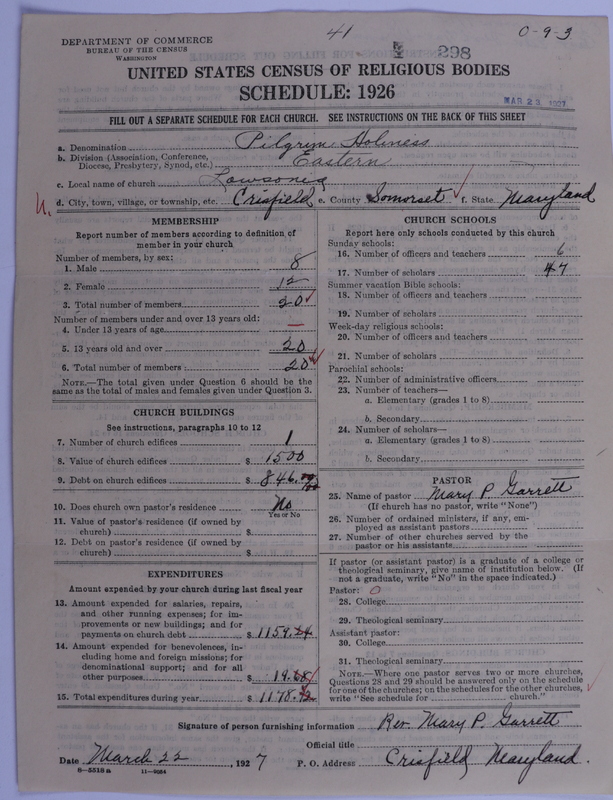 41
0-9-3
DEPARTMENT OF COMMERCE
BUREAU OF THE CENSUS
WASHINGTON
298
UNITED STATES CENSUS OF RELIGIOUS BODIES
SCHEDULE: 1926
MAR 23 1927
FILL OUT A SEPARATE SCHEDULE FOR EACH CHURCH. SEE INSTRUCTIONS ON THE BACK OF THIS SHEET
a. Denomination Pilgrim Holiness
b. Division (Association, Conference, Diocese, Presbytery, Synod, etc.) Eastern
c. Local name of church Lawsonia
d. City, town, village, or township, etc. Crisfield e. County Somerset f. State Maryland
MEMBERSHIP
Report number of members according to definition of
member in your church
Number of members, by sex:
1. Male 8
2. Female 12
3. Total number of members 20
Number of members under and over 13 years old:
4. Under 13 years of age —
5. 13 years old and over 20
6. Total number of members 20
NOTE.—The total given under Question 6 should be
same as the total of males and females given under Question 3.
CHURCH BUILDINGS
See instructions, paragraphs 10 to 12
7. Number of church edifices 1
8. Value of church edifices $ 1500
9. Debt on church edifices $ 846.
10. Does church own pastor's residence No
Yes or No
11. Value of pastor's residence (if owned by
church) $
12. Debt on pastor's residence (if owned by
church) $
EXPENDITURES
Amount expended by your church during last fiscal year
13. Amount expended for salaries, repairs,
and other running expenses; for im-
provements or new buildings; and for
payments on church debt $ 1159.24
14. Amount expended for benevolences, in-
cluding home and foreign missions; for
denominational support; and for all
other purposes $ 19.
15. Total expenditures during year $ 1178.
CHURCH SCHOOLS
Report here only schools conducted by this church
Sunday schools:
16. Number of officers and teachers 6
17. Number of scholars 47
Summer vacation Bible schools:
18. Number of officers and teachers
19. Number of scholars
Week-day religious schools:
20. Number of officers and teachers
21. Number of scholars
Parochial schools:
22. Number of administrative officers
23. Number of teachers—
a. Elementary (grades 1 to 8)
b. Secondary
24. Number of scholars—
a. Elementary (grades 1 to 8)
b. Secondary
PASTOR
25. Name of pastor Mary P. Garrett
(If church has no pastor, write "None")
26. Number of ordained ministers, if any, em-
ployed as assistant pastors
27. Number of other churches served by the
pastor or his assistants
If pastor (or assistant pastor) is a graduate of a college or
theological seminary, give name of institution below. (If
not a graduate, write "No" in the space indicated.)
Pastor: 0
28. College
29. Theological seminary
Assistant pastor:
30. College
31. Theological seminary
NOTE.—Where one pastor serves two or more churches,
Questions 28 and 29 should be answered only on the schedule
for one of the churches; on the schedules for the other churches,
write "See schedule for church."
Signature of person furnishing information Rev. Mary P. Garrett
Official title
Date March 22, 1927 P. O. Address Crisfield Maryland.
8—5518a 11—9024